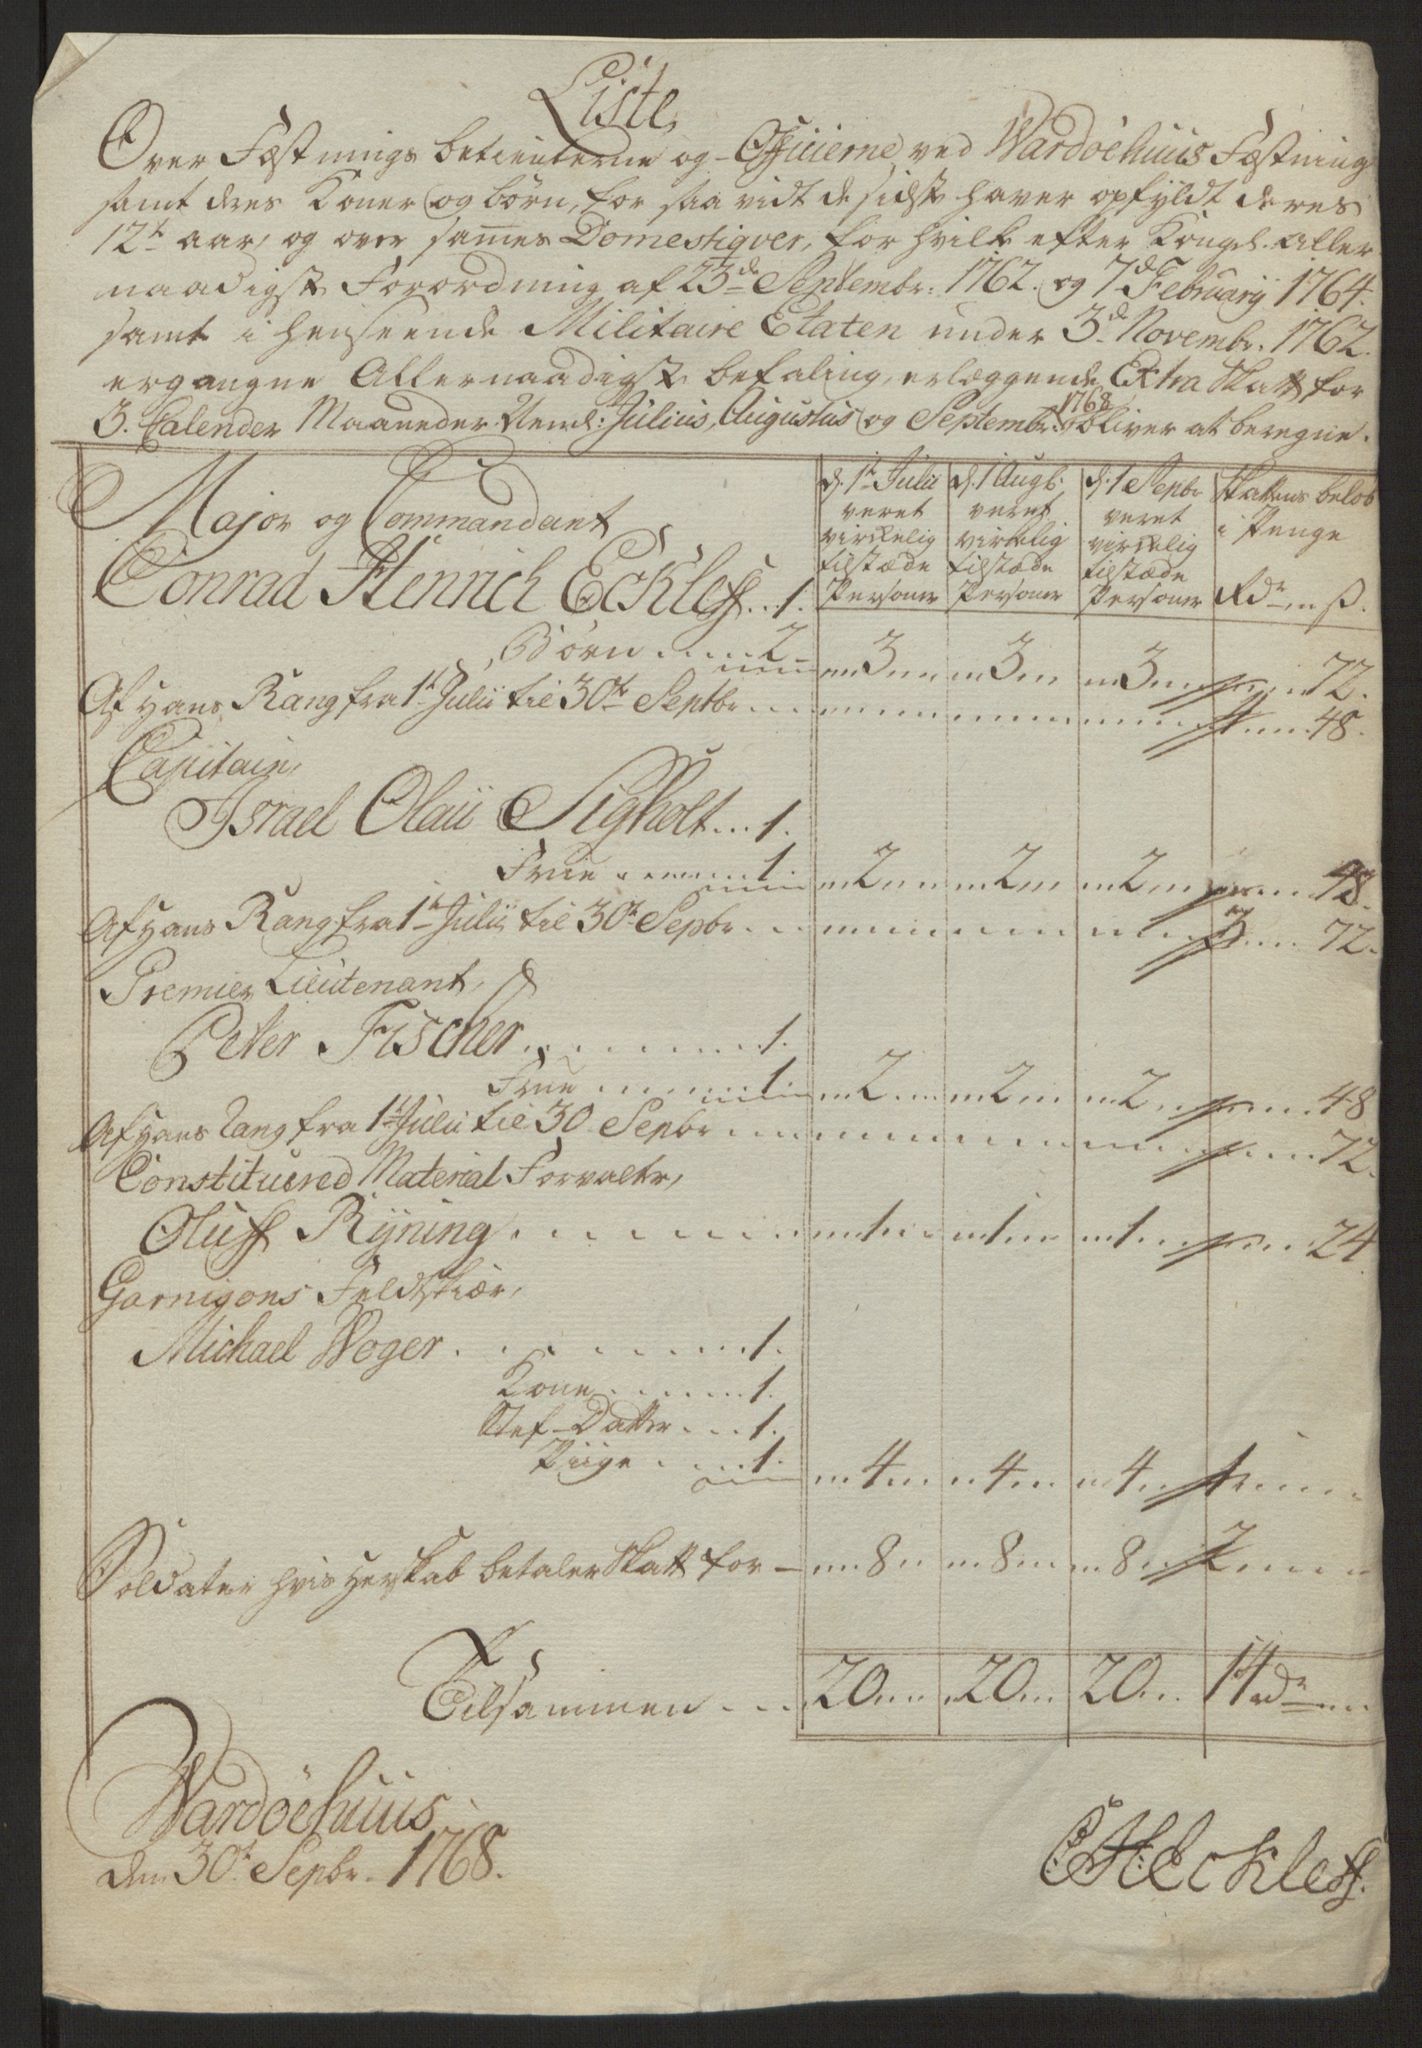 Liste,
Over Fæstnings betienterne og Officierne, ved Wardöehuus Fæstning
samt deres Koner og börn, for saa vidt de sidste haver opfyldt deres
12te aar, og over sammes Domestiqver, for hvilke efter Kongel. Aller
naadigste Forordning af 23de Septembr: 1762. og 7de Februarij 1764.
samt i henseende Militaire Etaten under 3de Novembr. 1762.
ergangne Allernaadigste befaling, erlæggende Extra Skatt for
3. Calender Maaneder. Neml: Julius, Augustus og Septembr: 1768 bliver at beregne.
d. 1te Julii veret virkelig tilstæde Personer
d. 1 Augb: veret virkelig tilstæde Personer
d. 1 Sepbr veret virkelig tilstæde Personer
Skattens beløb i Penge
Rdr ß.
Major og Commandant
Conrad Henrich Eckleff...1.
Börn.....2 3 3 3 72.
Af Hans Rang fra 1te Julii til 30te Septbr 4 48.
Capitain,
Israel Olaii Sigholt...1.
Frue.......1. 2 2 2 48.
Af Hans Rang fra 1te Julii til 30te Sepbr 3 72.
Premier Lieutenant,
Peter Fischer.........1.
Frue.......1. 2 2 2 48
Af Hans Rang fra 1te Julii til 30 Sepbr 72.
Constituered Material Forvalter,
Oluff Rÿning 1 1 1 24
Garnizons Feldskiær,
Michael Woger.........1.
Kone.......1.
Stef-Datter....1.
Piige.....1. 4 4 4 1
Soldater hvis Herskab betaler Skatt for 8 8 8 2
Tilsammen 20 20 20 14 rdr
Wardöehuus
den 30te Sepbr. 1768.
CHEckleff.